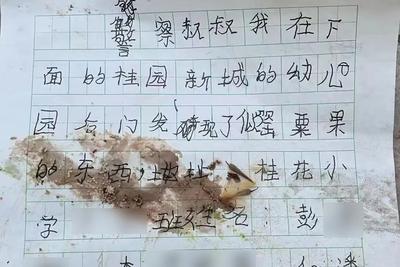 警察叔叔我在下
面的桂园新城的幼儿
园后门发现了似罂粟果
的东西，地址 桂花小
学 班 名 彭